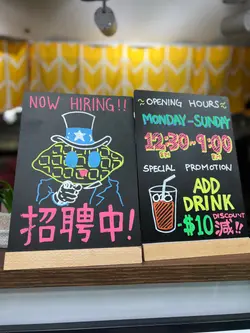 NOW HIRING!!
招聘中!
OPENING HOURS
MONDAY-SUNDAY
12:30-9:00
pm pm
SPECIAL PROMOTION
ADD
DRINK
-$10 DISCOUNT 減!!